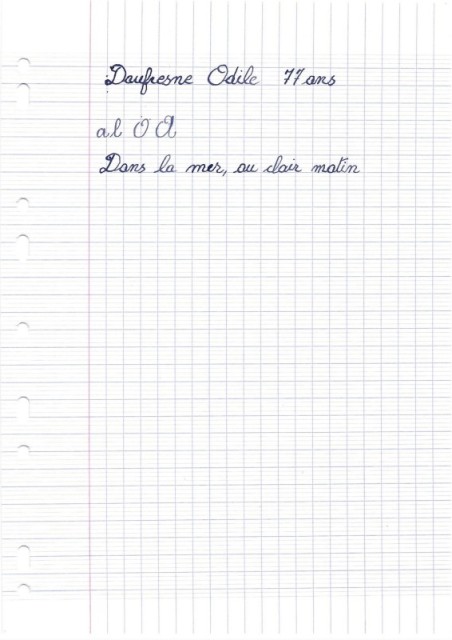 Daufresne Odile 77 ans
a l O A
Dans la mer, au clair matin